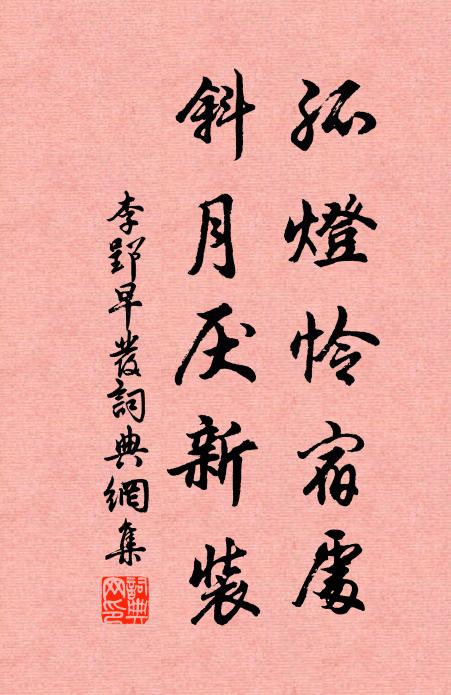 孤燈怜宿處
斜月厌新裝
李郢早發詞典網集
詞典網印